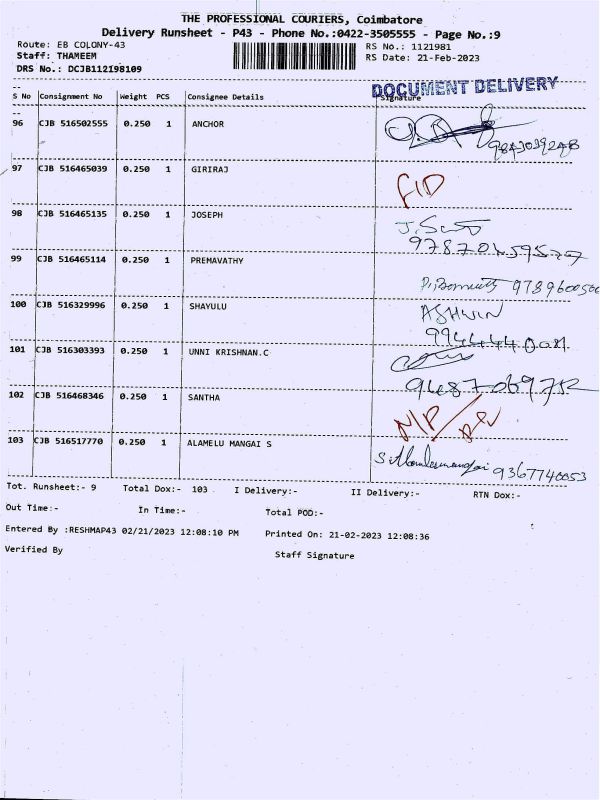 THE PROFESSIONAL COURIERS, Coimbatore
Delivery Runsheet - P43 - Phone No.:0422-3505555 - Page No.:9
Route: EB COLONY-43 RS No.: 1121981
Staff: THAMEEM RS Date: 21-Feb-2023
DRS No.: DCJB112198109
DOCUMENT DELIVERY
S No Consignment No Weight PCS Consignee Details Signature
96 CJB 516502555 0.250 1 ANCHOR
97 CJB 516465039 0.250 1 GIRIRAJ
98 CJB 516465135 0.250 1 JOSEPH
99 CJB 516465114 0.250 1 PREMAVATHY
100 CJB 516329996 0.250 1 SHAYULU ASHWIN
101 CJB 516303393 0.250 1 UNNI KRISHNAN.C
102 CJB 516468346 0.250 1 SANTHA
103 CJB 516517770 0.250 1 ALAMELU MANGAI S
9367740053
Tot. Runsheet:- 9 Total Dox:- 103 I Delivery:- II Delivery:- RTN Dox:-
Out Time:- In Time:- Total POD:-
Entered By :RESHMAP43 02/21/2023 12:08:10 PM Printed On: 21-02-2023 12:08:36
Verified By Staff Signature